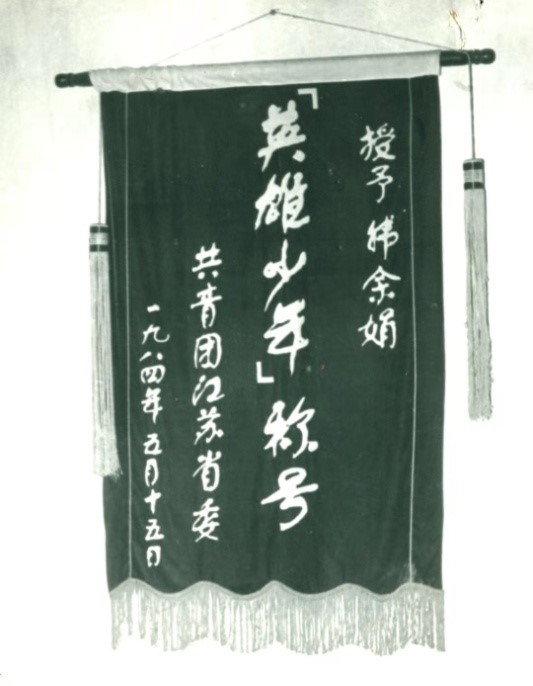 授予韩余娟
「英雄少年」称号
共青团江苏省委
一九八四年五月十五日